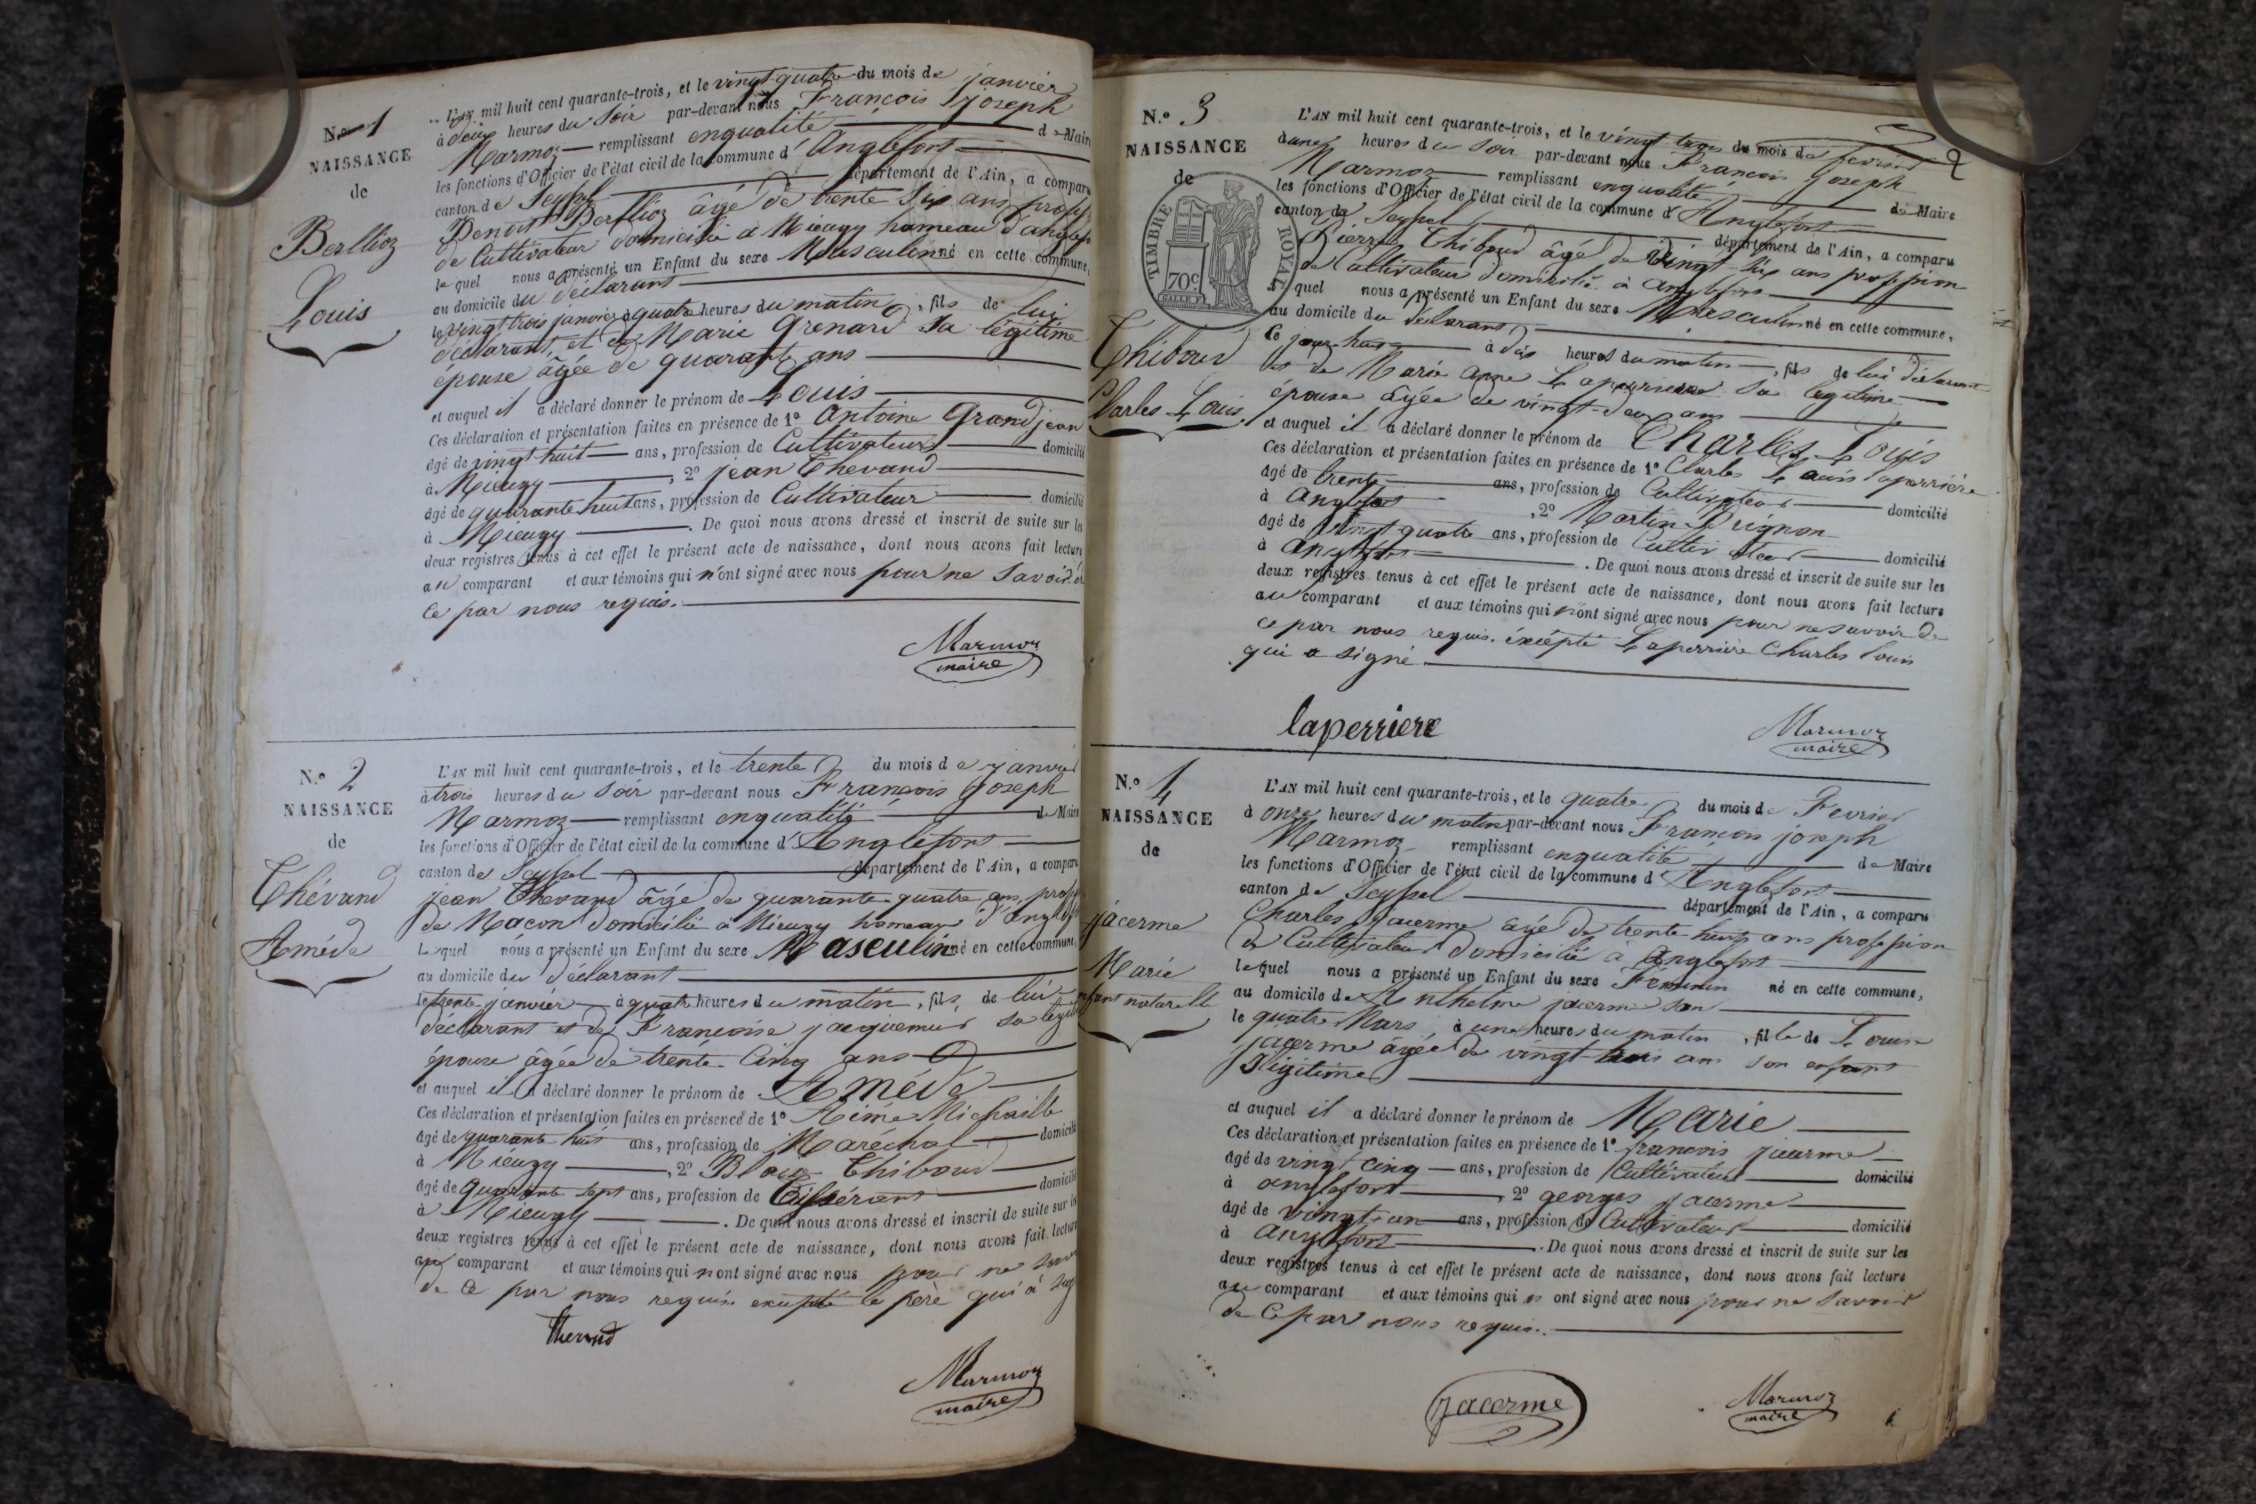 N.º 1
NAISSANCE
de
Berllioz
Louis
L'AN mil huit cent quarante-trois, et le vingt quatre du mois de janvier
à deux heures du Soir par-devant nous François joseph
Marmoz remplissant enqualité de Maire
les fonctions d'Officier de l'état civil de la commune d'Anglefort
canton de Seyssel département de l'Ain, a comparu
Benoit Berllioz âgé de trente Six ans, profess
de Cultivateur domicilié à Mieugy hameau d'anglef
le quel nous a présenté un Enfant du sexe Masculin né en cette commune,
au domicile du déclarant
le vingt trois janvier à quatre heures du matin, fils de lui
déclarant, et de Marie Grenard Sa légitime
épouse âgée de quarante ans
et auquel il a déclaré donner le prénom de Louis
Ces déclaration et présentation faites en présence de 1º Antoine Grandjean
âgé de vingt huit ans, profession de Cultivateur domicilié
à Mieugy, 2º jean Thevand
âgé de quarante huit ans, profession de Cultivateur domicilié
à Mieugy. De quoi nous avons dressé et inscrit de suite sur les
deux registres tenus à cet effet le présent acte de naissance, dont nous avons fait lecture
au comparant et aux témoins qui n'ont signé avec nous pour ne Savoir de
ce par nous requis.
Marmoz
maire
N.º 2
NAISSANCE
de
Thévand
Améde
L'AN mil huit cent quarante-trois, et le trente du mois de janvier
à trois heures du Soir par-devant nous François joseph
Marmoz remplissant enqualité de Maire
les fonctions d'Officier de l'état civil de la commune d'Anglefort
canton de Seyssel département de l'Ain, a comparu
jean Thevand âgé de quarante quatre ans, profess
de Maçon domicilié à Mieugy hameau d'anglef
Le quel nous a présenté un Enfant du sexe Masculin né en cette commune,
au domicile du déclarant
le trente janvier à quatre heures du matin, fils de lui
déclarant et de Françoise jacquemier sa légitime
épouse âgée de trente Cinq ans
et auquel il a déclaré donner le prénom de Améde
Ces déclaration et présentation faites en présence de 1º Aimé Michaille
âgé de quarante huit ans, profession de Maréchal domicilié
à Mieugy, 2º Thiboud
âgé de quarante sept ans, profession de Tisserant domicilié
à Mieugy. De quoi nous avons dressé et inscrit de suite sur les
deux registres tenus à cet effet le présent acte de naissance, dont nous avons fait lecture
au comparant et aux témoins qui n'ont signé avec nous pour ne Savoir
de ce par nous requis excepté le père qui a sig
Thevand
Marmoz
maire
2
N.º 3
NAISSANCE
de
TIMBRE ROYAL
70c
Thiboud
Charles Louis
L'AN mil huit cent quarante-trois, et le vingt trois du mois de fevrier
à une heures du Soir par-devant nous François Joseph
Marmoz remplissant enqualité de Maire
les fonctions d'Officier de l'état civil de la commune d'Anglefort
canton de Seyssel département de l'Ain, a comparu
Pierre Thiboud âgé de vingt Six ans profession
de Cultivateur domicilié à anglefort
quel nous a présenté un Enfant du sexe Masculin né en cette commune,
au domicile du déclarant
Ce à dix heures du matin, fils de lui déclarant
et de Marie Laperriere Sa légitime
épouse âgée de vingt-deux ans
et auquel il a déclaré donner le prénom de Charles Louis
Ces déclaration et présentation faites en présence de 1º Charles Louis laperrière
âgé de trente ans, profession de Cultivateur domicilié
à anglefort, 2º Martin Prignon
âgé de Vingt-quatre ans, profession de Cultivateur domicilié
à anglefort. De quoi nous avons dressé et inscrit de suite sur les
deux registres tenus à cet effet le présent acte de naissance, dont nous avons fait lecture
au comparant et aux témoins qui n'ont signé avec nous pour ne savoir de
ce par nous requis. éxcépté Laperrière Charles Louis
qui a signé
laperriere
Marmoz
maire
N.º 4
NAISSANCE
de
jacerme
Marie
enfant naturelle
L'AN mil huit cent quarante-trois, et le quatre du mois de Fevrier
à onze heures du matin par-devant nous François joseph
Marmoz remplissant enqualité de Maire
les fonctions d'Officier de l'état civil de la commune d'Anglefort
canton de Seyssel département de l'Ain, a comparu
Charles Jacerme âgé de trente huit ans profession
de Cultivateur domicilié à anglefort
lequel nous a présenté un Enfant du sexe Féminin né en cette commune,
au domicile de Anthelme jacerme son
le quatre Mars, à une heure du matin, fille de Louise
jacerme âgée de vingt trois ans son enfant
illigitime
et auquel il a déclaré donner le prénom de Marie
Ces déclaration et présentation faites en présence de 1º françois jacerme
âgé de vingt Cinq ans, profession de Cultivateur domicilié
à anglefort, 2º georges jacerme
âgé de vingt-un ans, profession de Cultivateur domicilié
à anglefort. De quoi nous avons dressé et inscrit de suite sur les
deux registres tenus à cet effet le présent acte de naissance, dont nous avons fait lecture
au comparant et aux témoins qui n ont signé avec nous pour ne Savoir
de Ce par nous requis.
jacerme
Marmoz
maire